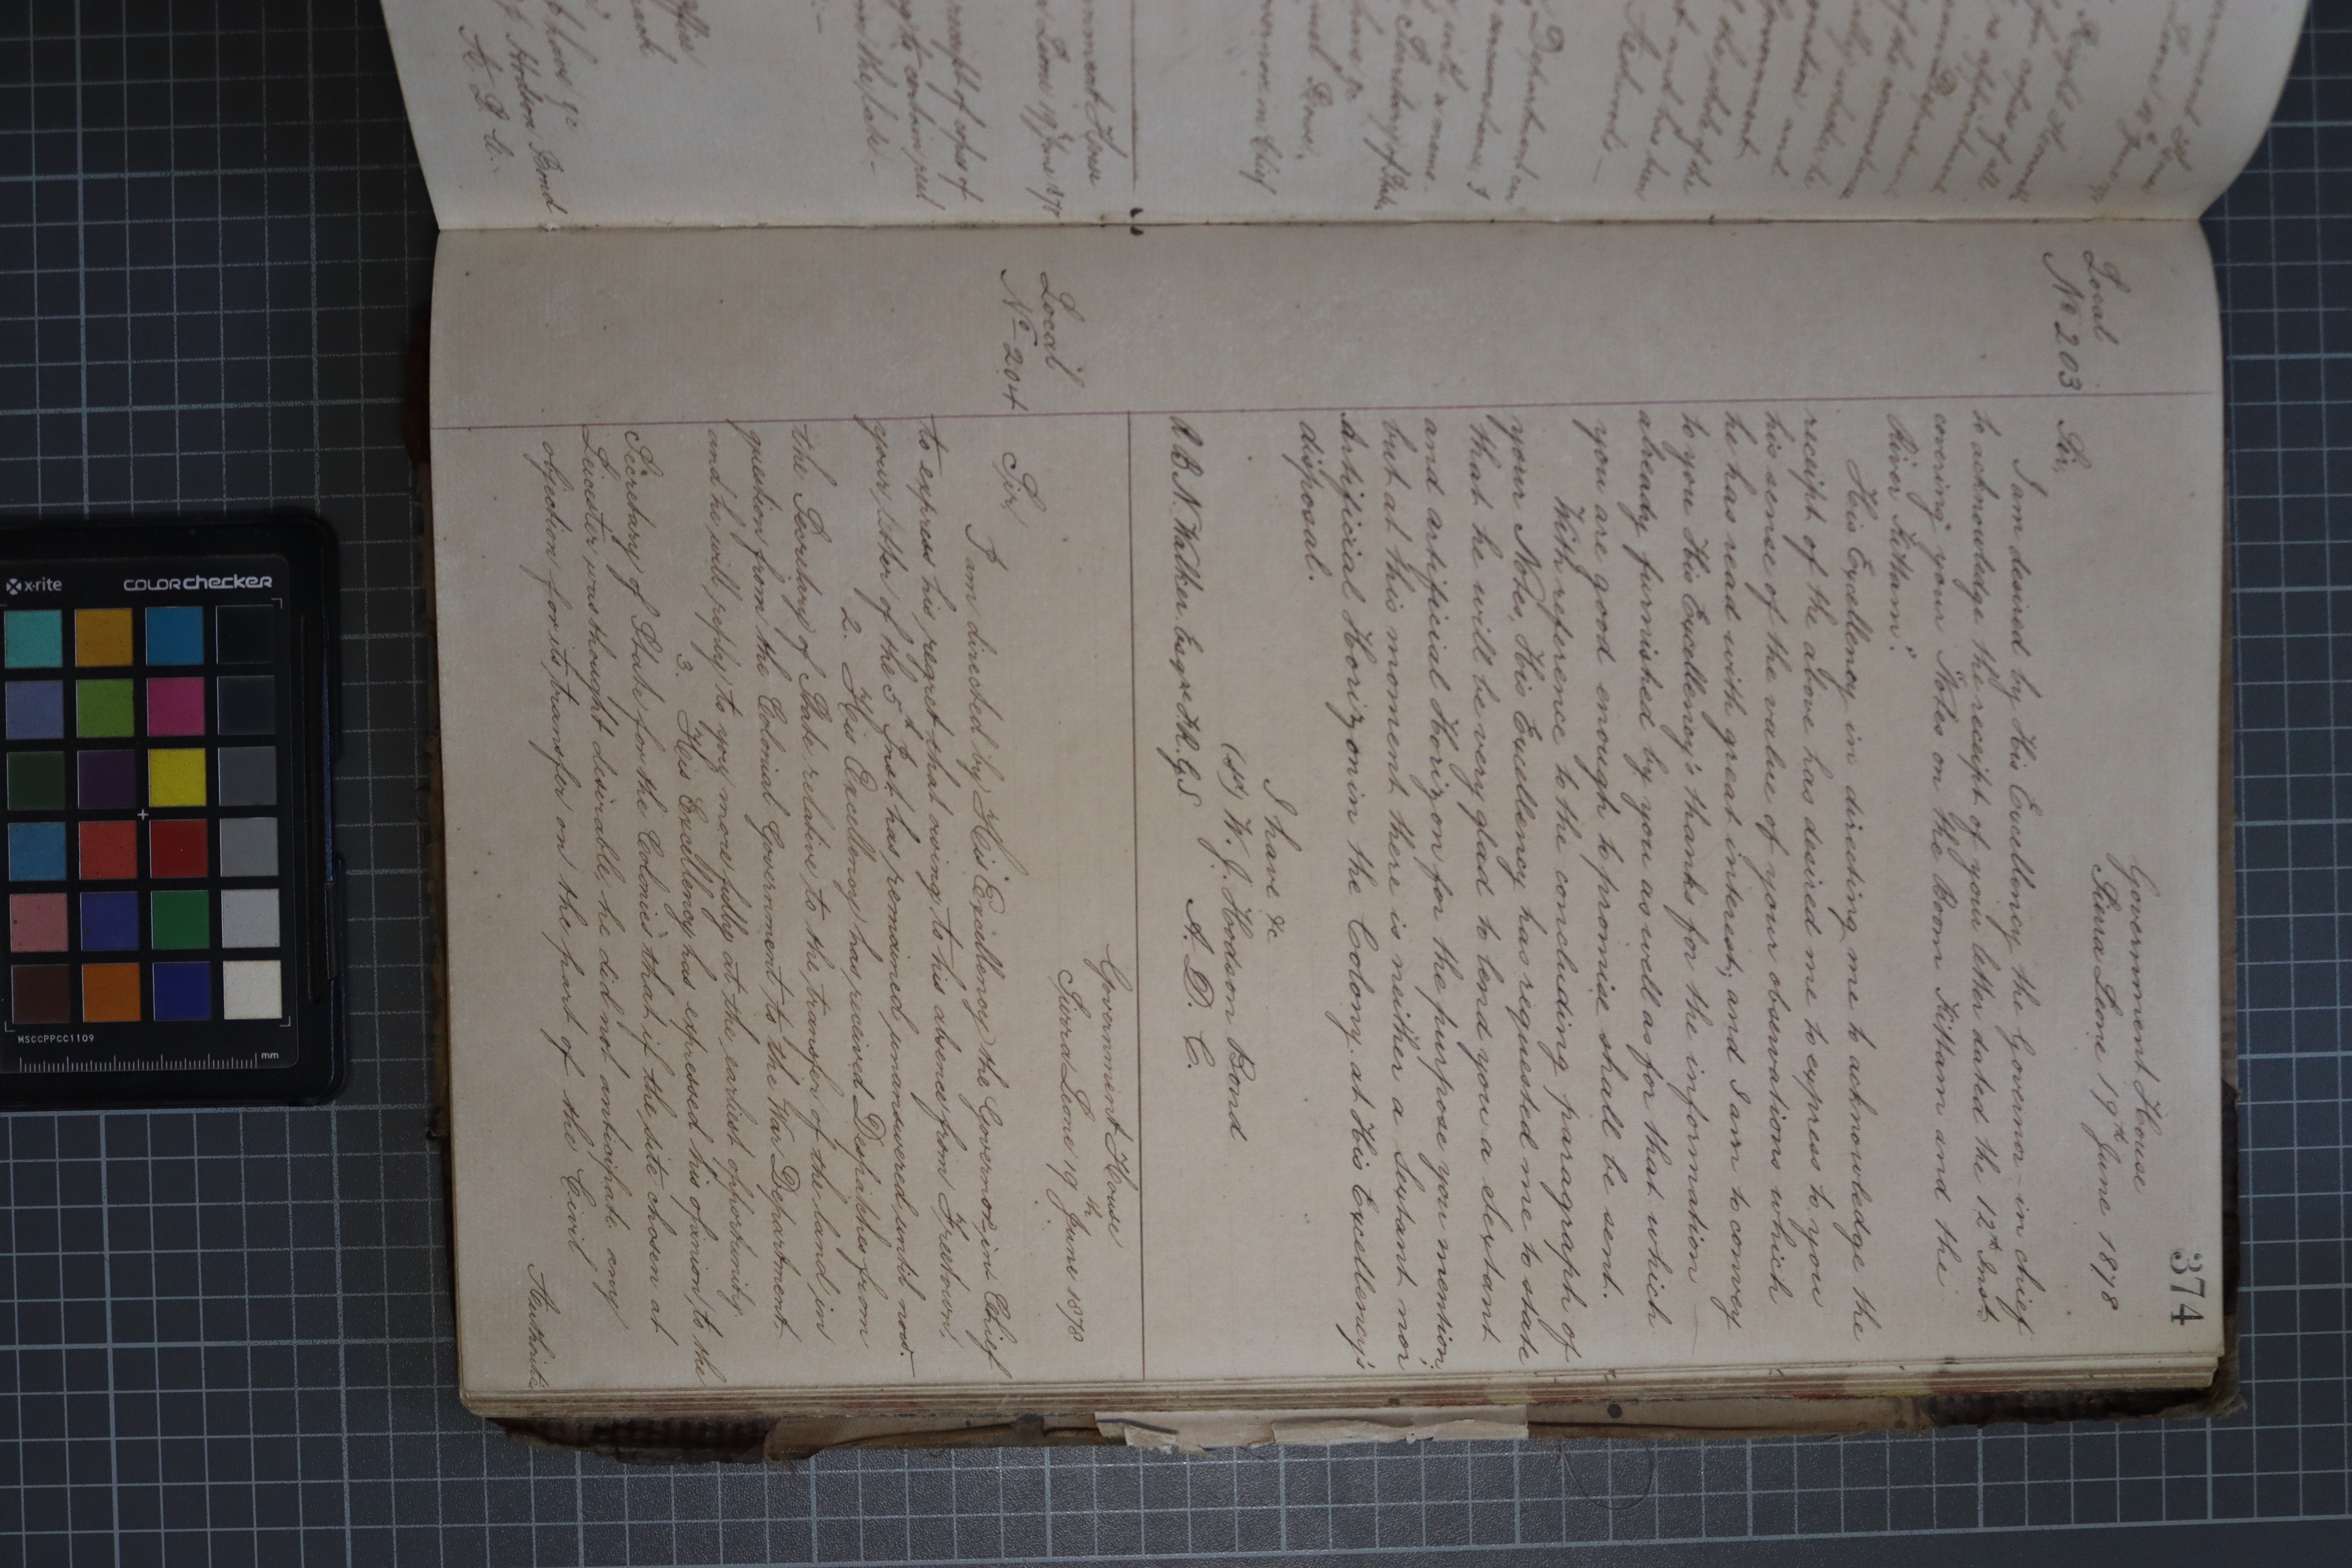 374
Government House
Sierra Leone 19th June 1878
Local
No 203
Sir,
I am desired by His Excellency the Governor-in-chief
to acknowledge the receipt of your letter dated the 12th Inst.
covering your "Notes on the Boom Kittam and the
River Kittam".
His Excellency in directing me to acknowledge the
receipt of the above has desired me to express to you
his sense of the value of your observations which
he has read with great interest; and I am to convey
to you His Excellency's thanks for the information
already furnished by you as well as for that which
you are good enough to promise shall be sent.
With reference to the concluding paragraph of
your Notes, His Excellency has requested me to state
that he will be very glad to lend you a Sextant
and artificial Horizon for the purpose you mention;
but at this moment there is neither a Sextant nor
Artificial Horizon in the Colony at His Excellency's
disposal.
I have &c
(sd) W. J. Hodson Bond
A. D. C.
R. B. N. Walker Esqre F.R.G.S
Government House
Sierra Leone 19th June 1878
Local
No 204
Sir,
I am directed by His Excellency the Governor in Chief
to express his regret that owing to his absence from Freetown,
your letter of the 5th Inst has remained unanswered until now.
2. His Excellency has received Despatches from
the Secretary of State relative to the transfer of the land in
question from the Colonial Government to the War Department
and he will reply to you more fully at the earliest opportunity.
3. His Excellency has expressed his opinion to the
Secretary of State for the Colonies that if the site chosen at
Leicester was thought desirable, he did not anticipate any
objection for its transfer on the part of the Civil
Authorities
Government House
Leone 19th June 1878
receipt of
to contain
Hodson Bond
A. D. C.
Department
Secretary of State